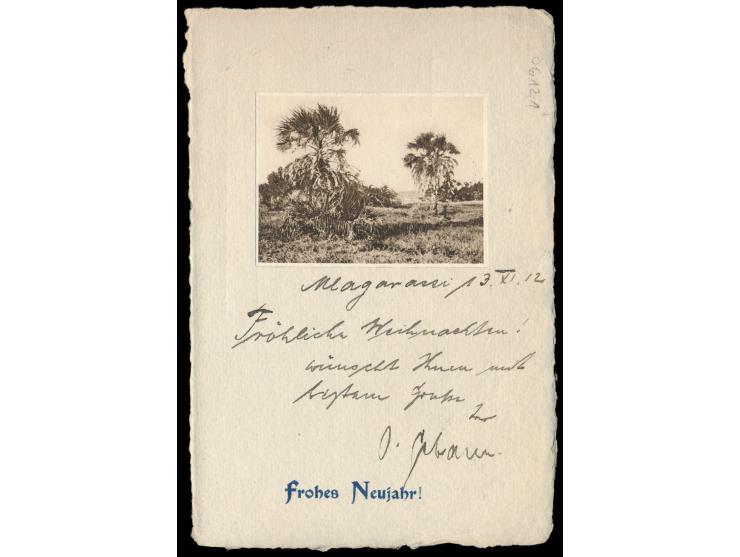 06121
Malagarassi 13.XI.12
Fröhliche Weihnachten!
wünscht Ihnen mit
bestem Gruße
Frohes Neujahr!